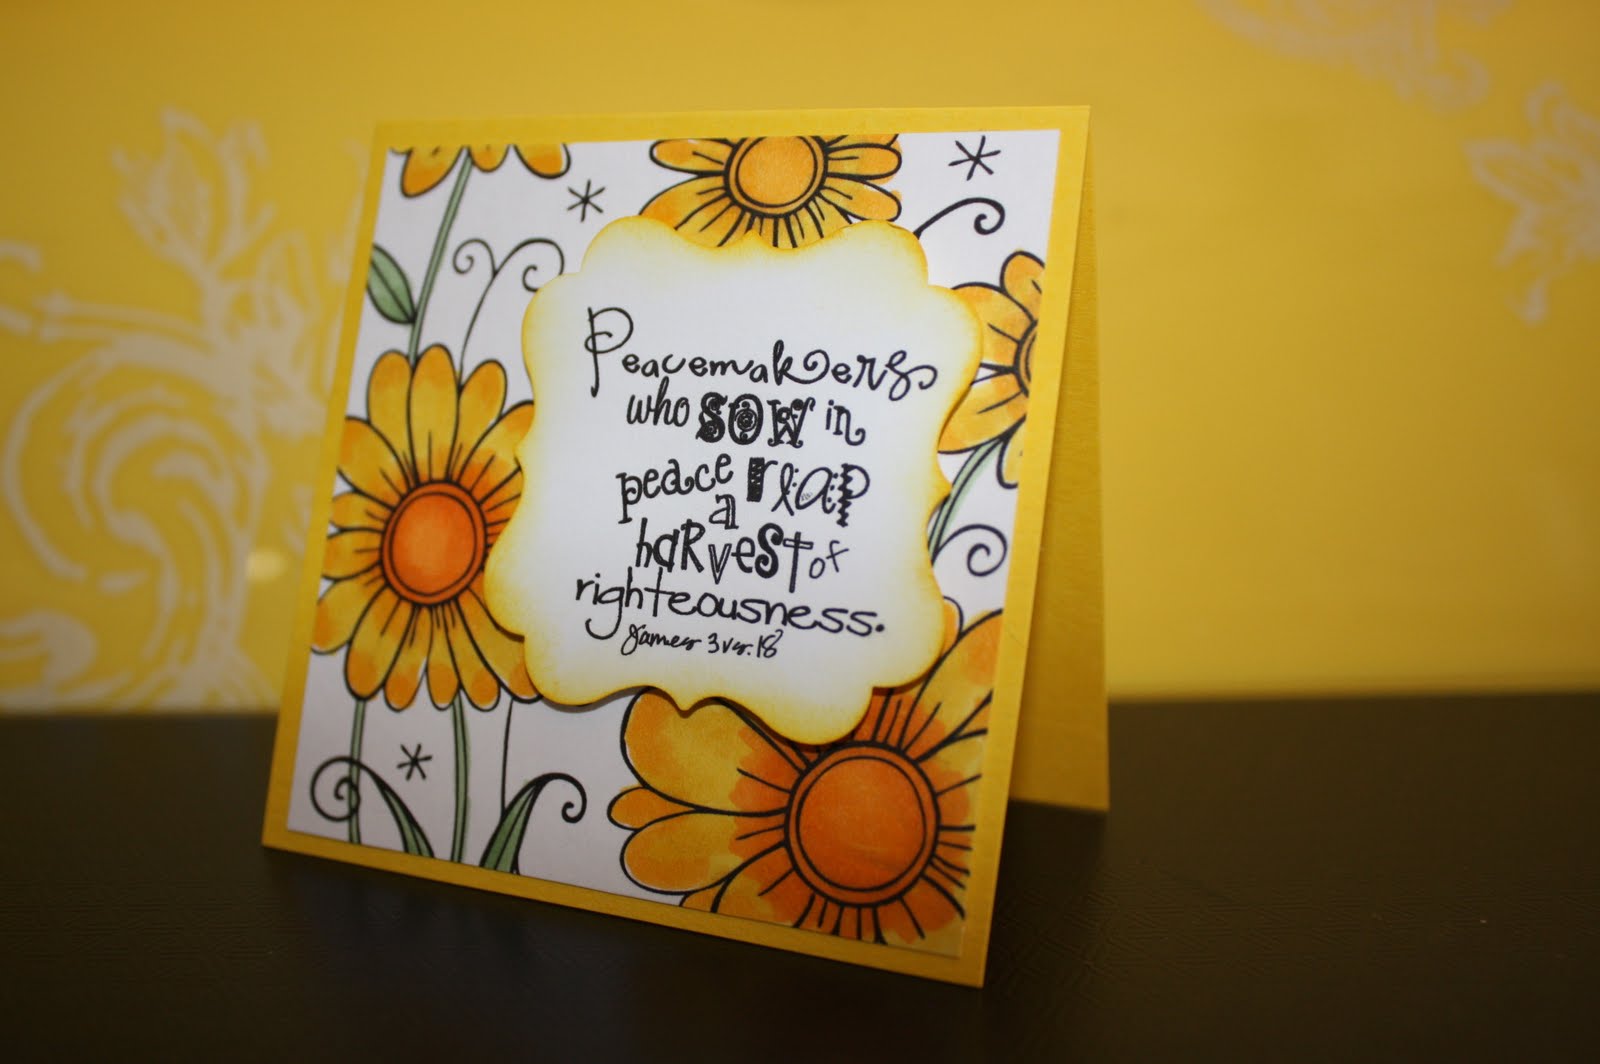 Peacemakers
who SOW in
peace reap
a
harvest of
righteousness.
James 3 vs. 18